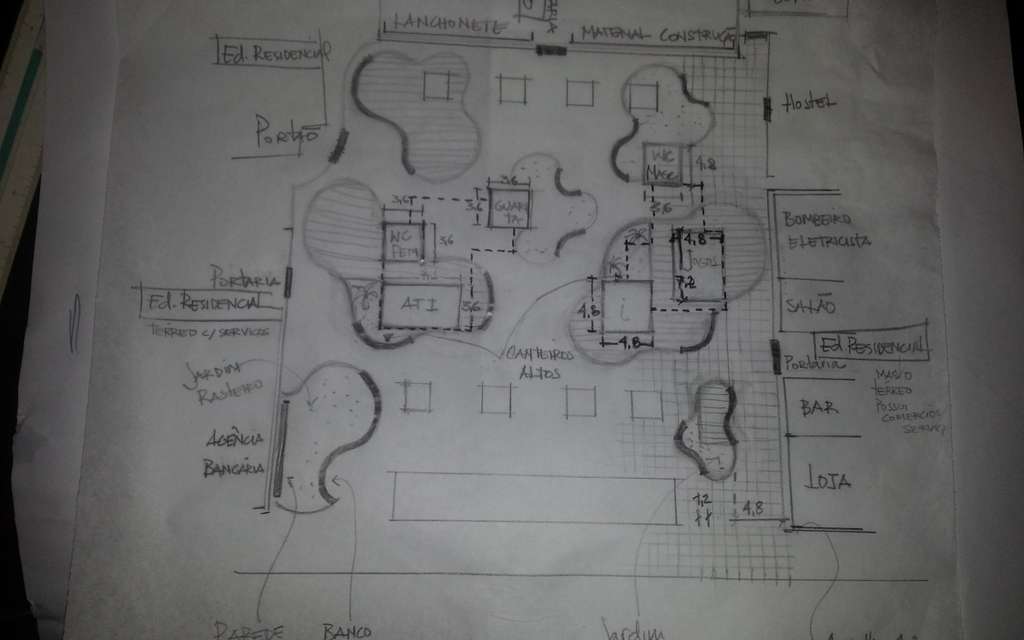 LANCHONETE
MATERIAL CONSTRUÇÃO
Ed. RESIDENCIAL
PORTÃO
HOSTEL
WC
MASC
4.8
3,6
3,6
3,6
GUARI
TA
3,6
WC
FEM
3,6
4,8
7,2
BOMBEIRO
ELETRICISTA
SALÃO
PORTARIA
Ed. RESIDENCIAL
TERREO C/ SERVICOS
ATI
3,6
4,8
i
4,8
CANTEIROS
ALTOS
Ed RESIDENCIAL
Portaria
TERREO
POSSUI
COMERCIOS
JARDIM
RASTEIRO
AGÊNCIA
BANCÁRIA
BAR
LOJA
1,2
4,8
PAREDE
BANCO
Jardim